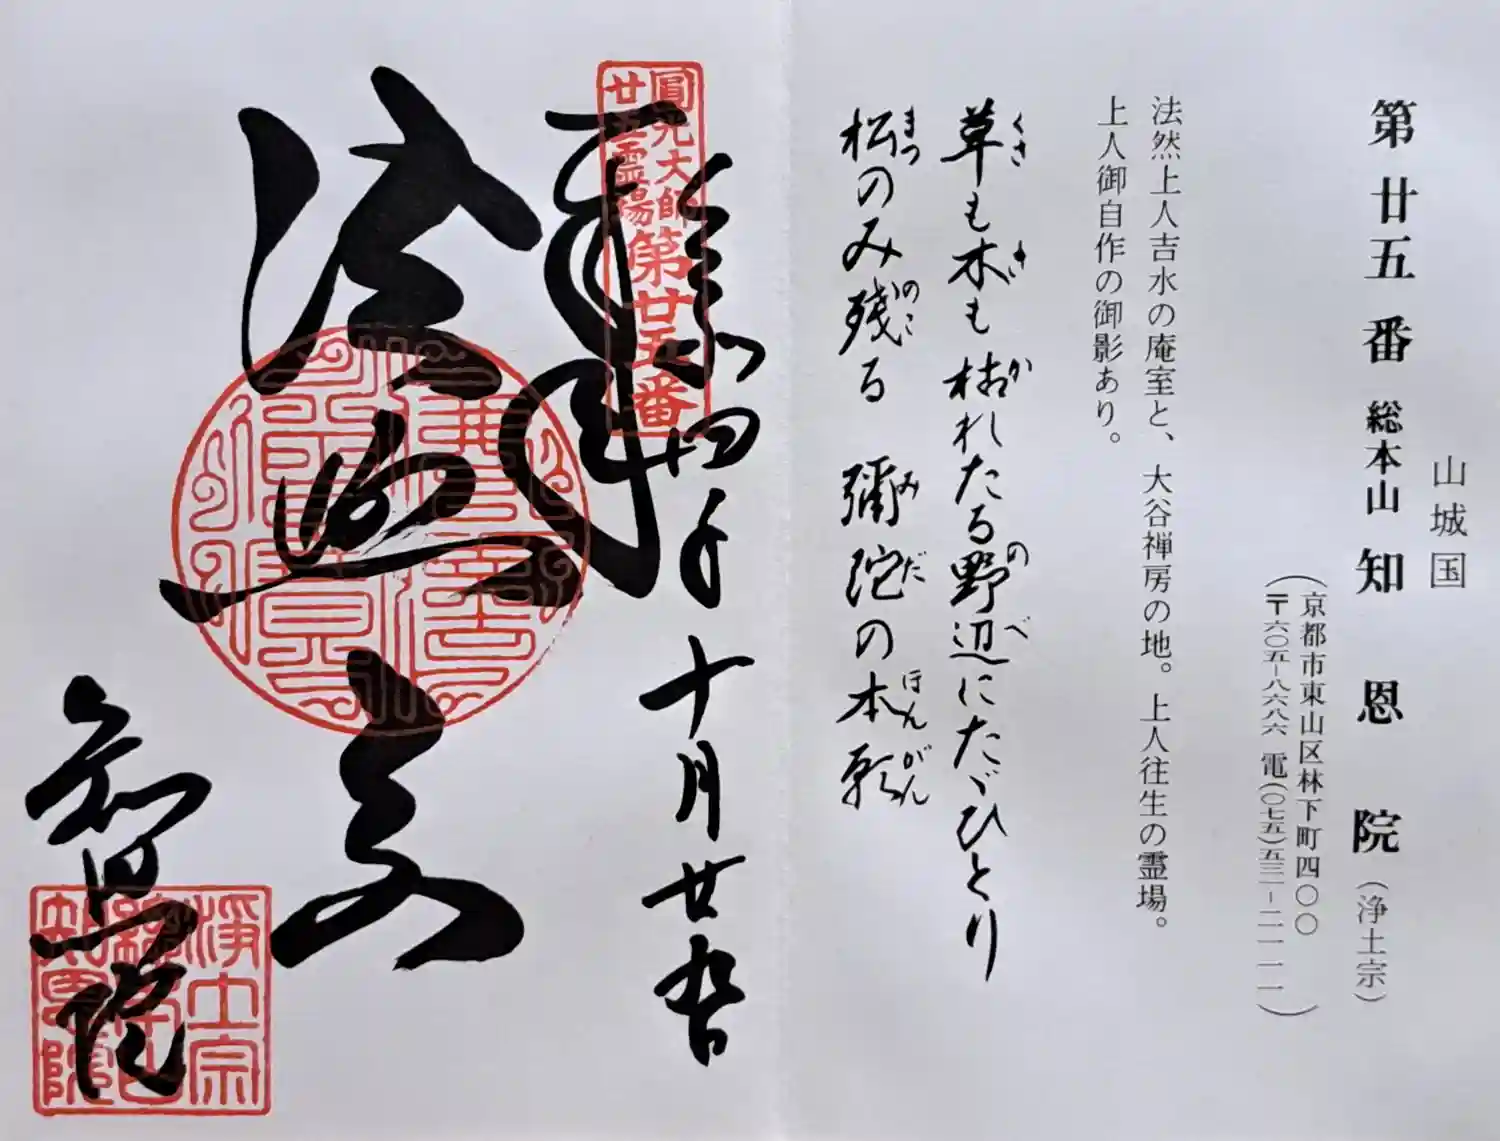 山城国
第廿五番 総本山 知恩院（浄土宗）
（京都市東山区林下町四〇〇
〒六〇五-八六八六 電（〇七五）五三一-二一一一）
法然上人吉水の庵室と、大谷禅房の地。上人往生の霊場。
上人御自作の御影あり。
草も木も枯れたる野辺にたゞひとり
くさ き か のべ
松のみ残る 彌陀の本願
まつ のこ みだ ほんがん
圓光大師
廿五霊場第廿五番
奉拝
十月廿九日
法然
知恩院
浄土宗
総本山
知恩院